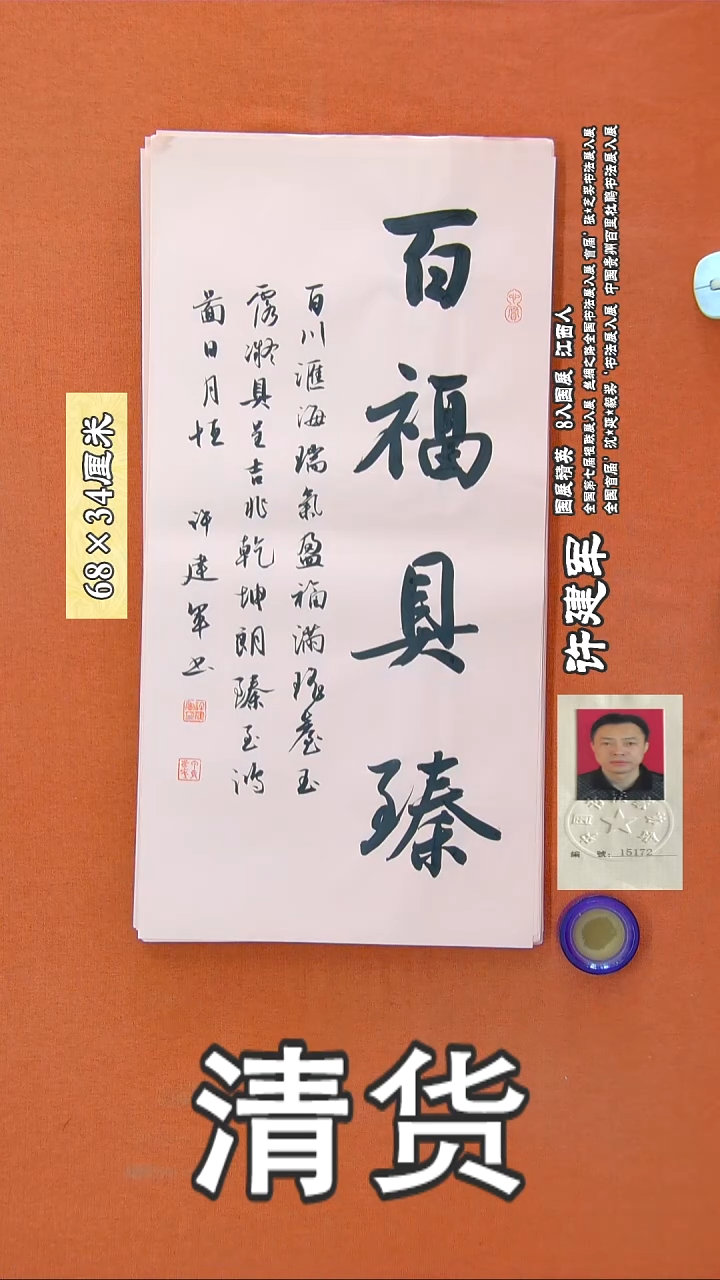 百福具臻
百川滙海瑞氣盈福滿瑶臺玉
露凝具呈吉兆乾坤朗臻至鴻
啚日月恒 许建军书
68×34厘米
国展精英 8入国展 江西人
全国第七届楹联展入展 丝绸之路全国书法展入展 首届‘张*芝奖书法展入展
全国首届‘沈*延*毅奖’书法展入展 中国贵州百里杜鹃书法展入展
许建军
編 號: 15172
清货